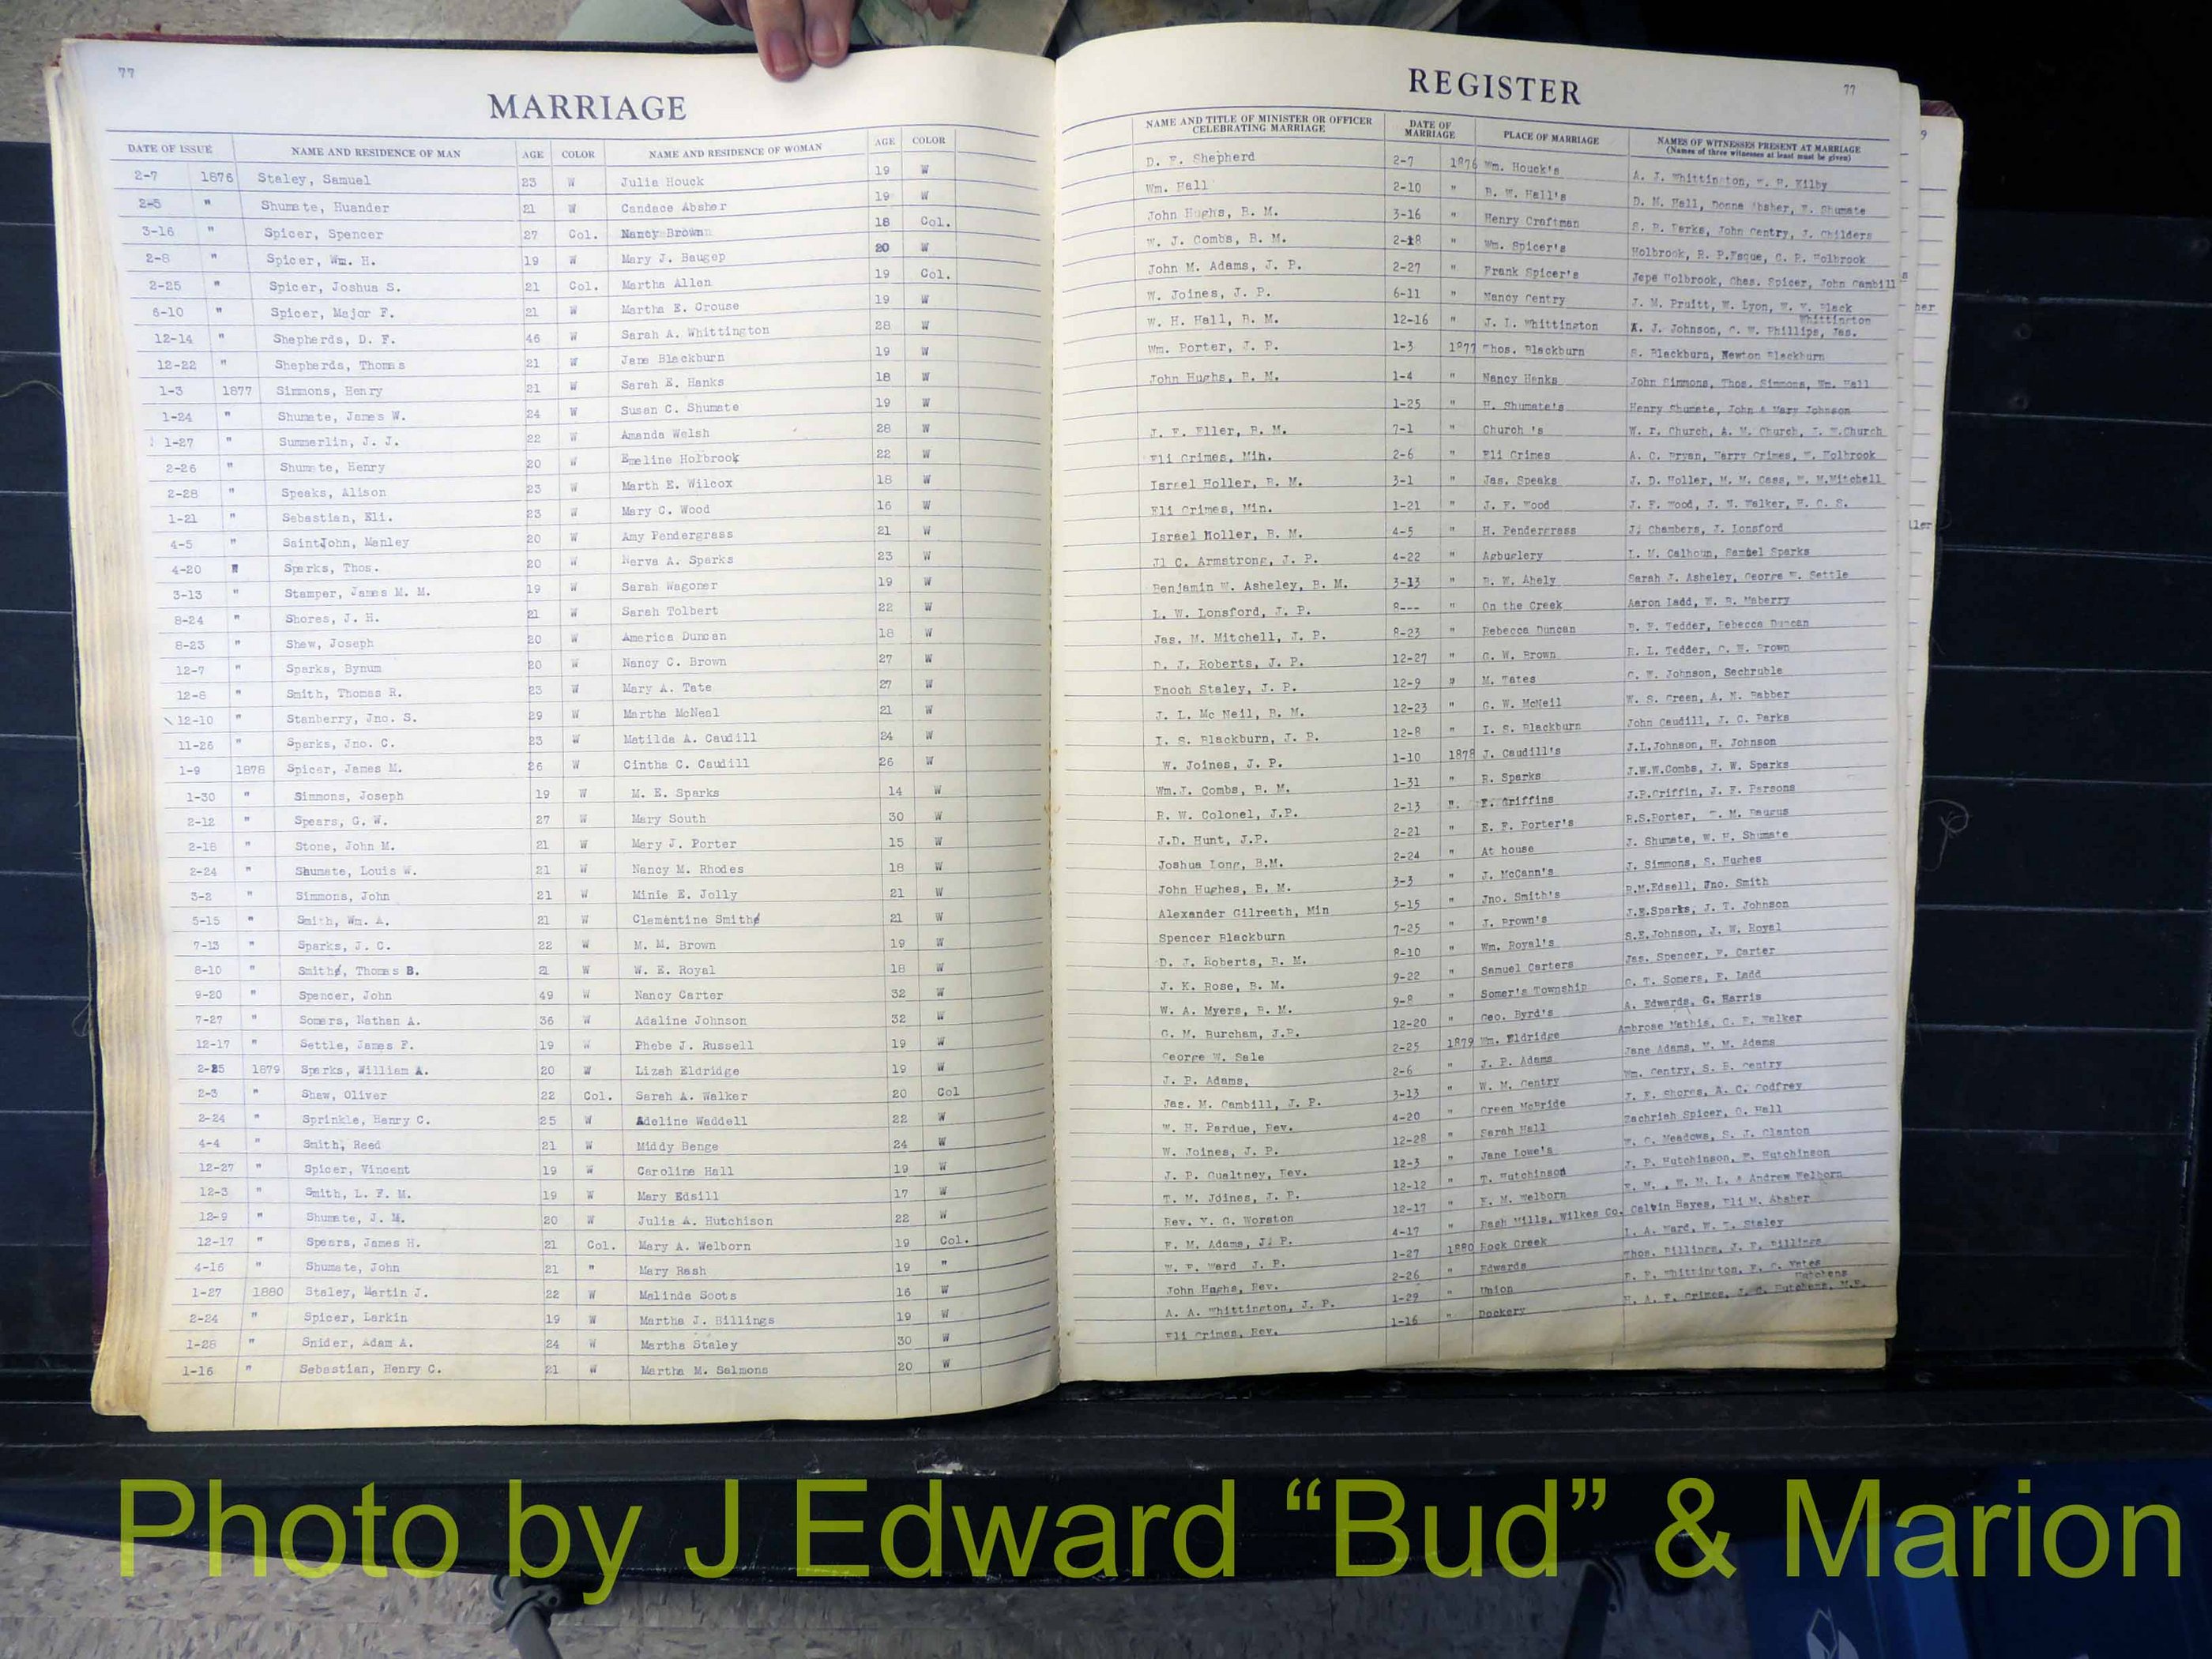 77
MARRIAGE
DATE OF ISSUE NAME AND RESIDENCE OF MAN AGE COLOR NAME AND RESIDENCE OF WOMAN AGE COLOR
2-7 1876 Staley, Samuel 23 W Julia Houck 19 W
2-5 " Shumate, Huander 21 W Candace Absher 19 W
3-16 " Spicer, Spencer 27 Col. Nancy Brown 18 Col.
2-8 " Spicer, Wm. H. 19 W Mary J. Baugep 20 W
2-25 " Spicer, Joshus S. 21 Col. Martha Allen 19 Col.
6-10 " Spicer, Major F. 21 W Martha E. Crouse 19 W
12-14 " Shepherds, D. F. 46 W Sarah A. Whittington 28 W
12-22 " Shepherds, Thomas 21 W Jane Blackburn 19 W
1-3 1877 Simmons, Henry 21 W Sarah E. Hanks 18 W
1-24 " Shumate, James W. 24 W Susan C. Shumate 19 W
1-27 " Summerlin, J. J. 22 W Amanda Welsh 28 W
2-26 " Shumate, Henry 20 W Emeline Holbrook 22 W
2-28 " Speaks, Alison 23 W Marth E. Wilcox 18 W
1-21 " Sebastian, Eli. 23 W Mary C. Wood 16 W
4-5 " SaintJohn, Manley 20 W Amy Pendergrass 21 W
4-20 " Sparks, Thos. 20 W Nerva A. Sparks 23 W
3-13 " Stamper, James M. M. 19 W Sarah Wagoner 19 W
8-24 " Shores, J. H. 21 W Sarah Tolbert 22 W
8-23 " Shaw, Joseph 20 W America Duncan 18 W
12-7 " Sparks, Bynum 20 W Nancy C. Brown 27 W
12-8 " Smith, Thomas R. 23 W Mary A. Tate 27 W
12-10 " Stanberry, Jno. S. 29 W Martha McNeal 21 W
11-26 " Sparks, Jno. C. 23 W Matilda A. Caudill 24 W
1-9 1878 Spicer, James M. 26 W Cintha C. Caudill 26 W
1-30 " Simmons, Joseph 19 W M. E. Sparks 14 W
2-12 " Spears, G. W. 27 W Mary South 30 W
2-18 " Stone, John M. 21 W Mary J. Porter 15 W
2-24 " Shumate, Louis W. 21 W Nancy M. Rhodes 18 W
3-2 " Simmons, John 21 W Minie E. Jolly 21 W
5-15 " Smith, Wm. A. 21 W Clementine Smith 21 W
7-13 " Sparks, J. C. 22 W M. M. Brown 19 W
8-10 " Smith, Thomas B. 21 W W. E. Royal 18 W
9-20 " Spencer, John 49 W Nancy Carter 32 W
7-27 " Somers, Nathan A. 36 W Adaline Johnson 32 W
12-17 " Settle, James F. 19 W Phebe J. Russell 19 W
2-25 1879 Sparks, William A. 20 W Lizah Eldridge 19 W
2-3 " Shaw, Oliver 22 Col. Sarah A. Walker 20 Col
2-24 " Sprinkle, Henry C. 25 W Adeline Waddell 22 W
4-4 " Smith, Reed 21 W Middy Benge 24 W
12-27 " Spicer, Vincent 19 W Caroline Hall 19 W
12-3 " Smith, L. F. M. 19 W Mary Edsill 17 W
12-9 " Shumate, J. M. 20 W Julia A. Hutchison 22 W
12-17 " Spears, James H. 21 Col. Mary A. Welborn 19 Col.
4-16 " Shumate, John 21 " Mary Rash 19 "
1-27 1880 Staley, Martin J. 22 W Malinda Soots 16 W
2-24 " Spicer, Larkin 19 W Martha J. Billings 19 W
1-28 " Snider, Adam A. 24 W Martha Staley 30 W
1-16 " Sebastian, Henry C. 21 W Martha M. Salmons 20 W
REGISTER
77
NAME AND TITLE OF MINISTER OR OFFICER CELEBRATING MARRIAGE DATE OF MARRIAGE PLACE OF MARRIAGE NAMES OF WITNESSES PRESENT AT MARRIAGE
(Names of three witnesses at least must be given)
D. F. Shepherd 2-7 1876 Wm. Houck's A. J. Whittington, W. H. Kilby
Wm. Hall 2-10 " R. W. Hall's D. M. Hall, Absher, F. Shumate
John Hughs, B. M. 3-16 " Henry Craftman S. P. Parks, John Gentry, J. Childers
W. J. Combs, B. M. 2-18 " Wm. Spicer's Holbrook, R. P. C. R. Holbrook
John M. Adams, J. P. 2-27 " Frank Spicer's Holbrook, Chas. Spicer, John Gambill
W. Joines, J. P. 6-11 " Nancy Gentry J. M. Pruitt, W. Lyon, W. V. Black
W. H. Hall, B. M. 12-16 " J. I. Whittington A. J. Johnson, C. W. Phillips, Jas. Whittington
Wm. Porter, J. P. 1-3 1877 Thos. Blackburn S. Blackburn, Newton Blackburn
John Hughs, B. M. 1-4 " Nancy Hanks John Simmons, Thos. Simmons, Wm. Hall
1-25 " H. Shumate's Henry Shumate, John & Mary Johnson
J. F. Eller, B. M. 7-1 " Church 's W. F. Church, A. M. Church, Church
Eli Grimes, Min. 2-6 " Eli Grimes A. C. Bryan, Harry Grimes, W. Holbrook
Israel Holler, B. M. 3-1 " Jas. Speaks J. D. Holler, M. M. Cass, W. M. Mitchell
Eli Grimes, Min. 1-21 " J. F. Wood J. F. Wood, J. N. Walker, H. C. S.
Israel Holler, B. M. 4-5 " H. Pendergress J. Chambers, J. Lonsford
Jl C. Armstrong, J. P. 4-22 " Agbuglery L. M. Calhoun, Samuel Sparks
Benjamin W. Asheley, B. M. 3-13 " B. W. Ahely Sarah J. Asheley, George W. Settle
L. W. Lonsford, J. P. 8--- " On the Creek Aaron Ladd, W. R. Maberry
Jas. M. Mitchell, J. P. 8-23 " Rebecca Duncan Tedder, Rebecca Duncan
D. J. Roberts, J. P. 12-27 " G. W. Brown R. L. Tedder, G. W. Brown
Enoch Staley, J. P. 12-9 " M. Tates C. F. Johnson, Sechruble
J. L. Mc Neil, B. M. 12-23 " G. W. McNeil W. S. Green, A. N. Babber
I. S. Blackburn, J. P. 12-8 " I. S. Blackburn John Caudill, J. C. Parks
W. Joines, J. P. 1-10 1878 J. Caudill's J.L.Johnson, H. Johnson
Wm.J. Combs, B. M. 1-31 " R. Sparks J.W.W.Combs, J. W. Sparks
R. W. Colonel, J.P. 2-13 " E. Griffins J.P.Griffin, J. F. Parsons
J.D. Hunt, J.P. 2-21 " E. F. Porter's R.S.Porter,
Joshua Long, B.M. 2-24 " At house J. Shumate, W. F. Shumate
John Hughes, B. M. 3-3 " J. McCann's J. Simmons, S. Hughes
Alexander Gilreath, Min 5-15 " Jno. Smith's R.M.Edsell, Jno. Smith
Spencer Blackburn 7-25 " J. Brown's J.E.Sparks, J. T. Johnson
D. J. Roberts, B. M. 8-10 " Wm. Royal's S.E.Johnson, J. W. Royal
J. K. Rose, B. M. 9-22 " Samuel Carters Jas. Spencer, F. Carter
W. A. Myers, B. M. 9-8 " Somer's Township C. T. Somers, E. Ladd
G. M. Burcham, J.P. 12-20 " Geo. Byrd's A. Edwards, G. Harris
George W. Sale 2-25 1879 Wm. Eldridge Ambrose Mathis, C. F. Walker
J. P. Adams, 2-6 " J. P. Adams Jane Adams, M. M. Adams
Jas. M. Gambill, J. P. 3-13 " W. M. Gentry Wm. Gentry, S. E. Gentry
W. H. Perdue, Rev. 4-20 " Green McBride J. E. Shores, A. C. Godfrey
W. Joines, J. P. 12-28 " Sarah Hall Zachriah Spicer, O. Hall
J. P. Gualtney, Rev. 12-3 " Jane Lowe's W. C. Meadows, S. J. Clanton
T. M. Joines, J. P. 12-12 " T. Hutchinson J. P. Hutchinson, Hutchinson
Rev. Y. G. Worston 12-17 " E. M. Welborn & Andrew Welborn
F. M. Adams, J. P. 4-17 " Rash Mills, Wilkes Co. Calvin Hayes, Eli M. Absher
W. F. Ward J. P. 1-27 1880 Rock Creek L. A. Ward, Staley
John Hughs, Rev. 2-26 " Edwards Thos. Billings, J. F. Billings
A. A. Whittington, J. P. 1-29 " Union Whittington, Yates
Eli Grimes, Rev. 1-16 " Dockery H. A. F. Grimes, Hutchens
Photo by J Edward “Bud” & Marion